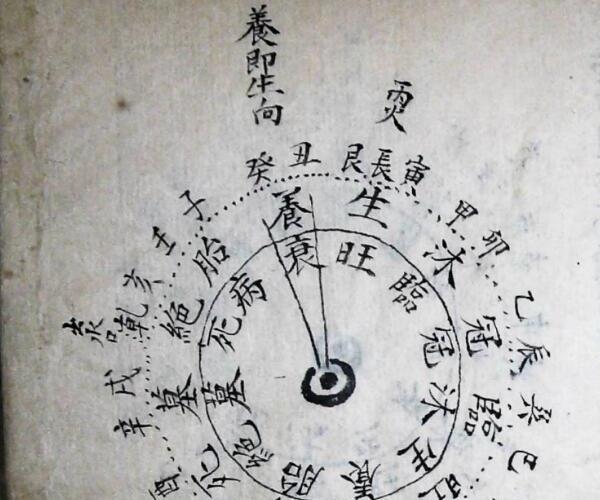 養即生向
癸丑
艮長寅
甲卯
乙辰
巳
子
壬
亥
乾
戌
辛
酉
養
生
沐
冠
臨
旺
胎
絕
墓
死
衰
旺
臨
冠
沐
生
養
胎
絕
墓
死
病